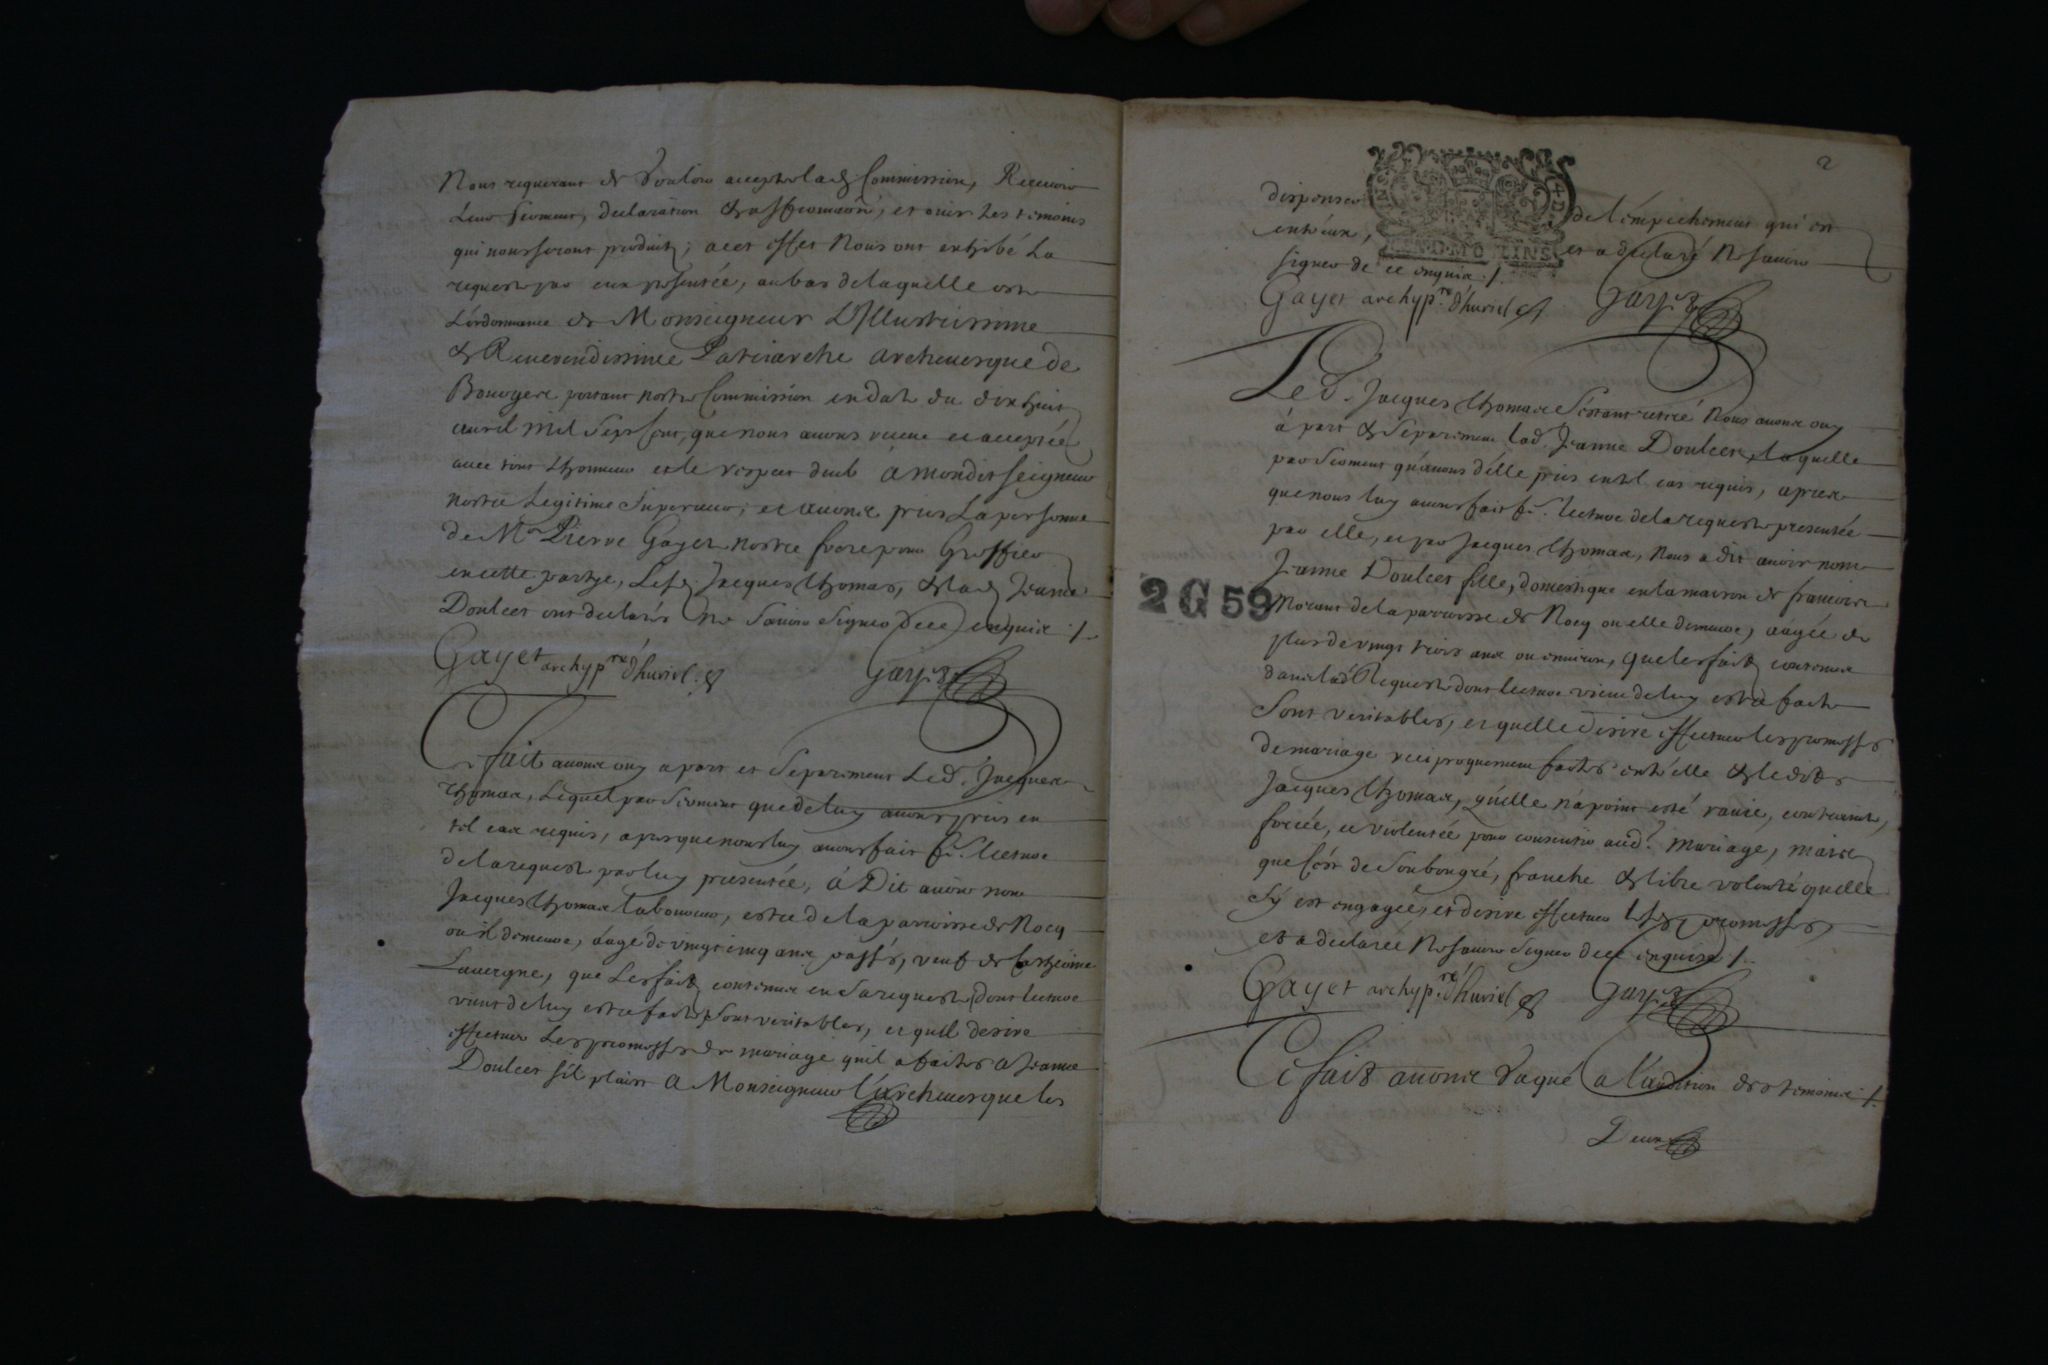 Nous requerant de Vouloir accepter lad. Commission, Recevoir
Leur serment, declaration & affirmation, et ouir Les temoins
qui nous seront produits; a cet effet Nous ont exhibé La
requeste par eux presentée, au bas de laquelle est
L'ordonnance de Monseigneur L'Illustrissime
& Reverendissime Patriarche archevesque de
Bourges portant nostre Commission en date du dixhuit
avril Mil Sept Cent, que nous avons receue et acceptée
avec tout L'honneur et le respect deub à mondit seigneur
nostre Legitime Superieur; et avons pris La personne
de Mr. Pierre Gayet nostre frere pour Greffier
en cette partye, Lesd. Jacques thomas, & lad. Jeanne
Doulcet ont declarés ne Savoir Signer de ce enquis ./.
Gayet archyp.re d'huriel
Gayet
Ce fait avons ouy a part et Separement Led. Jacques
thomas, Lequel par Serment que de luy avons pris en
tel cas requis, apres que nous luy avons fait f.e lecture
de la requeste par luy presentée, à Dit avoir nom
Jacques thomas laboureur, estre de la parroisse de Nocq
ou il demeure, aagé de vingt cinq ans passés, veuf de
Lauvergne, que Les faits contenus en Sa requeste dont lecture
vient de luy estre faite Sont veritables, et quil desire
effectuer Les promesses de mariage quil a faites a Jeanne
Doulcet s'il plaist a Monseigneur l'archevesque les
2
dispenser de l'empechement qui est
entr'eux, et a declaré Ne savoir
signer de ce enquis ./.
GEN. D. MOULINS
Gayet archyp.re d'huriel
Gayet
Led. Jacques thomas S'estant retiré Nous avons ouy
à part & Separement lad. Jeanne Doulcet, laquelle
par Serment qu'avons d'elle pris en tel cas requis, apres
que nous luy avons fait f.e lecture de la requeste presentée
par elle, et par Jacques thomas, Nous a dit avoir nom
Jeanne Doulcet fille, domestique en la maison de francois
Morant de la parroisse de Nocq ou elle demeure, aagée de
plus de vingt trois ans ou environ, que les faits contenus
dans lad. Requeste dont lecture vient de luy estre faite
Sont veritables, et quelle desire effectuer les promesses
de mariage reciproquement faites entr'elle & ledit
Jacques thomas, qu'elle n'a point esté ravie, contrainte,
forcée, et violentée pour consentir aud. mariage, mais
que c'est de Son bon gré, franche & libre volonté quelle
S'y est engagée, et desire effectuer lesd. promesses,
et a declarée Ne savoir Signer de ce enquise ./.
2 G 59
Gayet archyp.re d'huriel
Gayet
Ce fait avons Vaqué a l'audition des temoins ./.
Deux